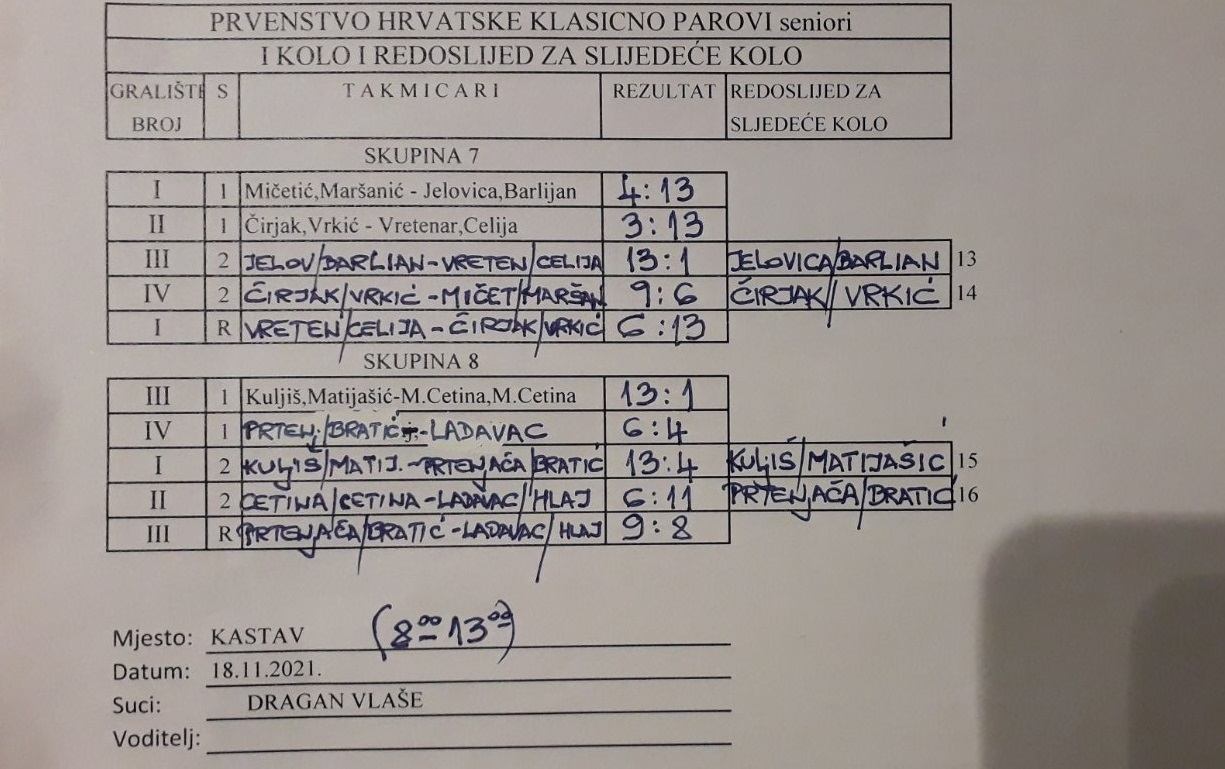 PRVENSTVO HRVATSKE KLASICNO PAROVI seniori
I KOLO I REDOSLIJED ZA SLIJEDEĆE KOLO
GRALIŠTE BROJ S TAKMICARI REZULTAT REDOSLIJED ZA SLJEDEĆE KOLO
SKUPINA 7
I 1 Mičetić,Maršanić - Jelovica,Barlijan 4:13
II 1 Čirjak,Vrkić - Vretenar,Celija 3:13
III 2 JELOV/BARLIAN-VRETEN/CELIJA 13:1 JELOVICA/BARLIAN 13
IV 2 ČIRJAK/VRKIĆ-MIČET/MARŠAN 9:6 ČIRJAK/VRKIĆ 14
I R VRETEN/CELIJA-ČIRJAK/VRKIĆ 6:13
SKUPINA 8
III 1 Kuljiš,Matijašić-M.Cetina,M.Cetina 13:1
IV 1 PRTENJ/BRATIĆ-LADAVAC 6:4
I 2 KULJIŠ/MATIJ.-PRTENJAČA/BRATIĆ 13:4 KULJIŠ/MATIJAŠIC 15
II 2 CETINA/CETINA-LADAVAC/HLAJ 6:11 PRTENJAČA/BRATIĆ 16
III R PRTENJAČA/BRATIĆ-LADAVAC/HLAJ 9:8
Mjesto: KASTAV (8⁰⁰-13⁰⁰)
Datum: 18.11.2021.
Suci: DRAGAN VLAŠE
Voditelj: